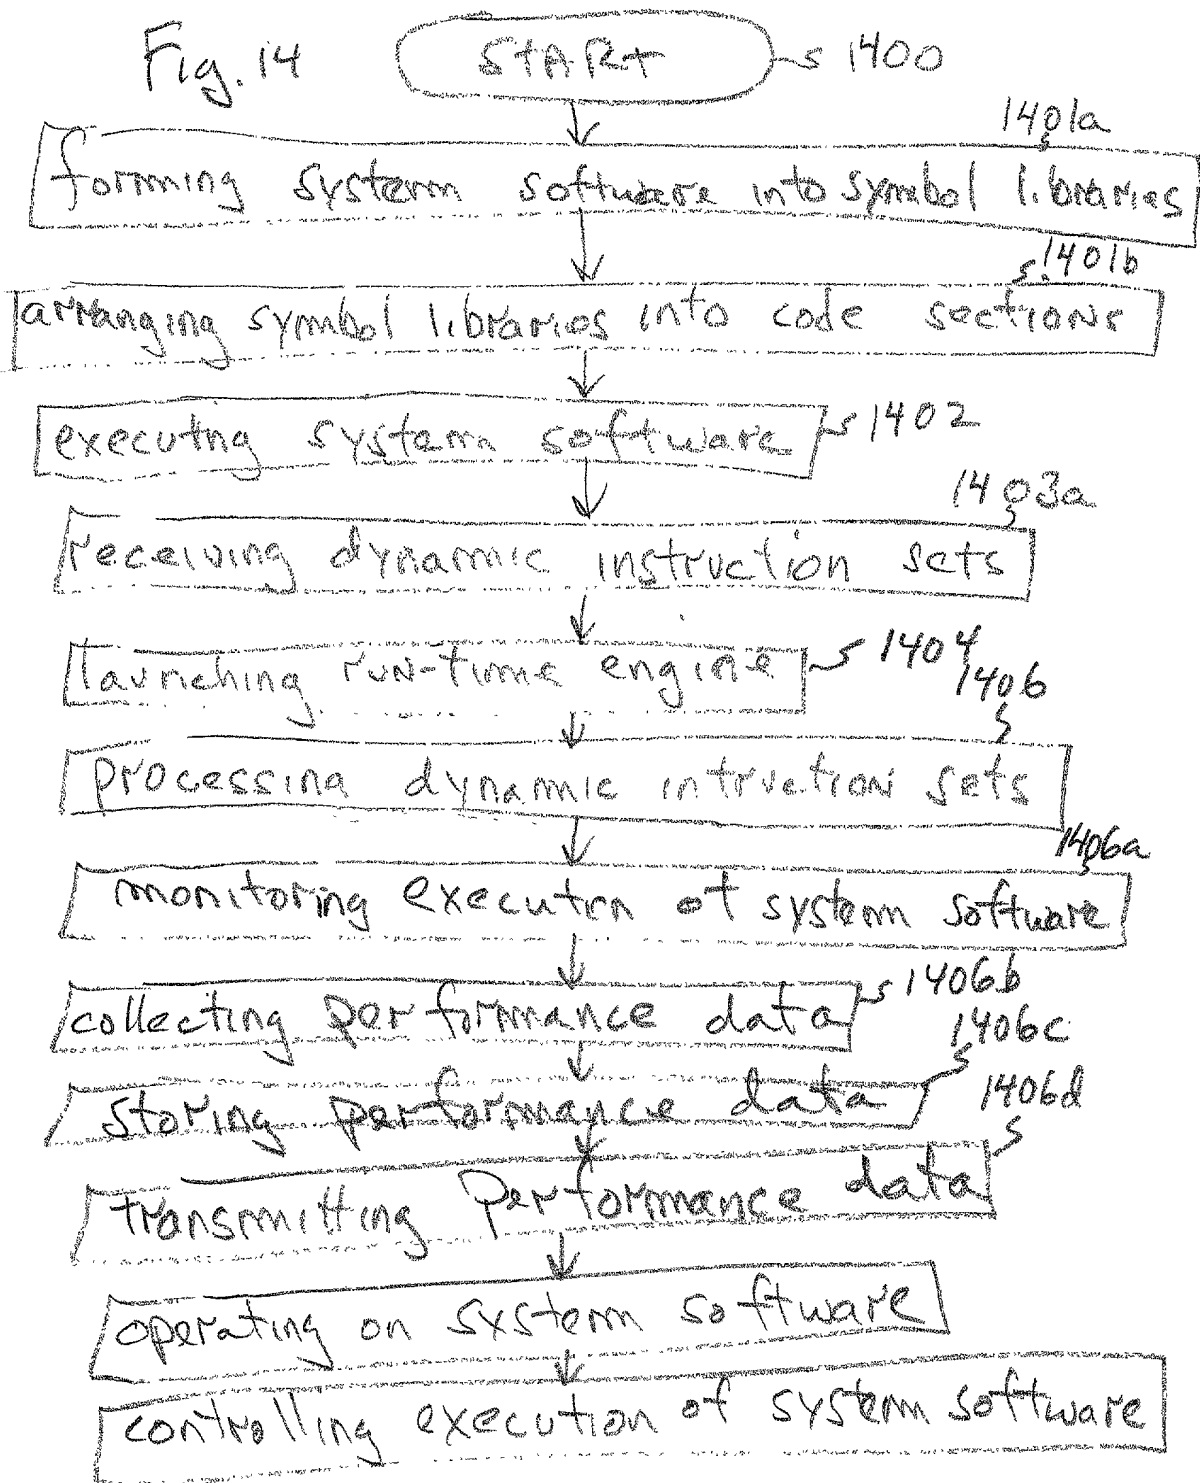 Fig. 14 START 1400
1401a
forming system software into symbol libraries
1401b
arranging symbol libraries into code sections
executng system software 1402
1403a
receiving dynamic instruction sets
launching run-time engine 1404
1406
processing dynamic intruction sets
1406a
monitoring execution of system software
collecting performance data 1406b
1406c
storing performance data 1406d
transmitting performance data
operating on system software
controlling execution of system software